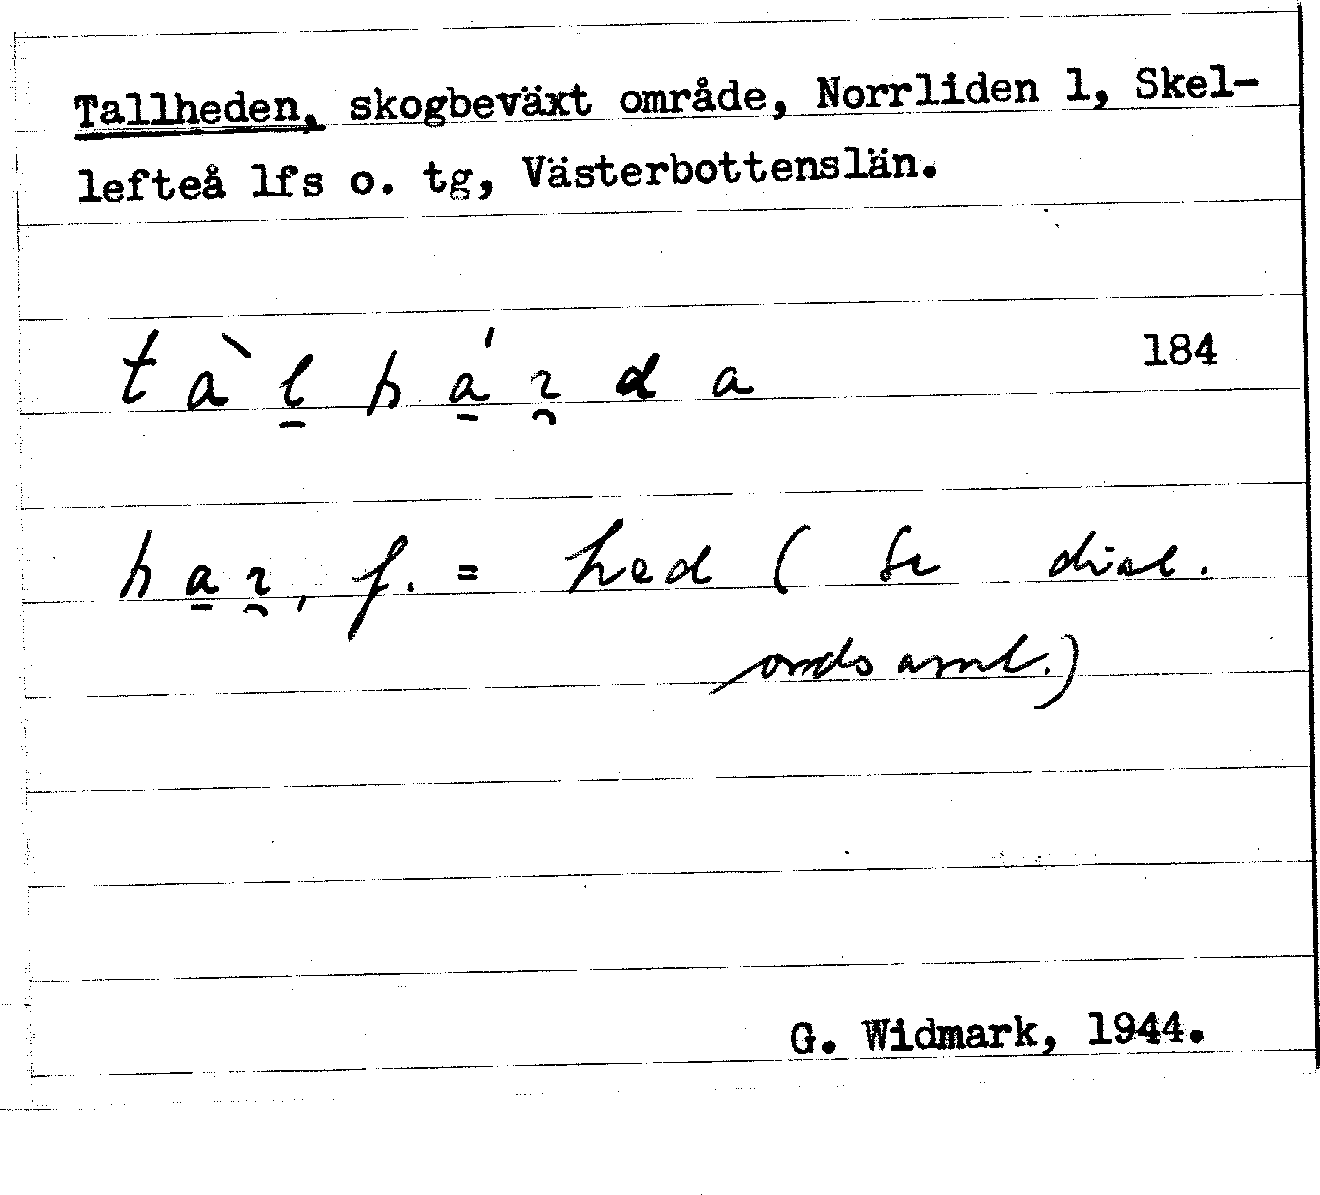 Tallheden, skogbeväxt område, Norrliden 1, Skel-
lefteå lfs o. tg, Västerbottenslän.
tàl̲há̲ɿ̯da 184
ha̲ɿ̯, f. = hed (Se dial.
ordsaml.)
G. Widmark, 1944.